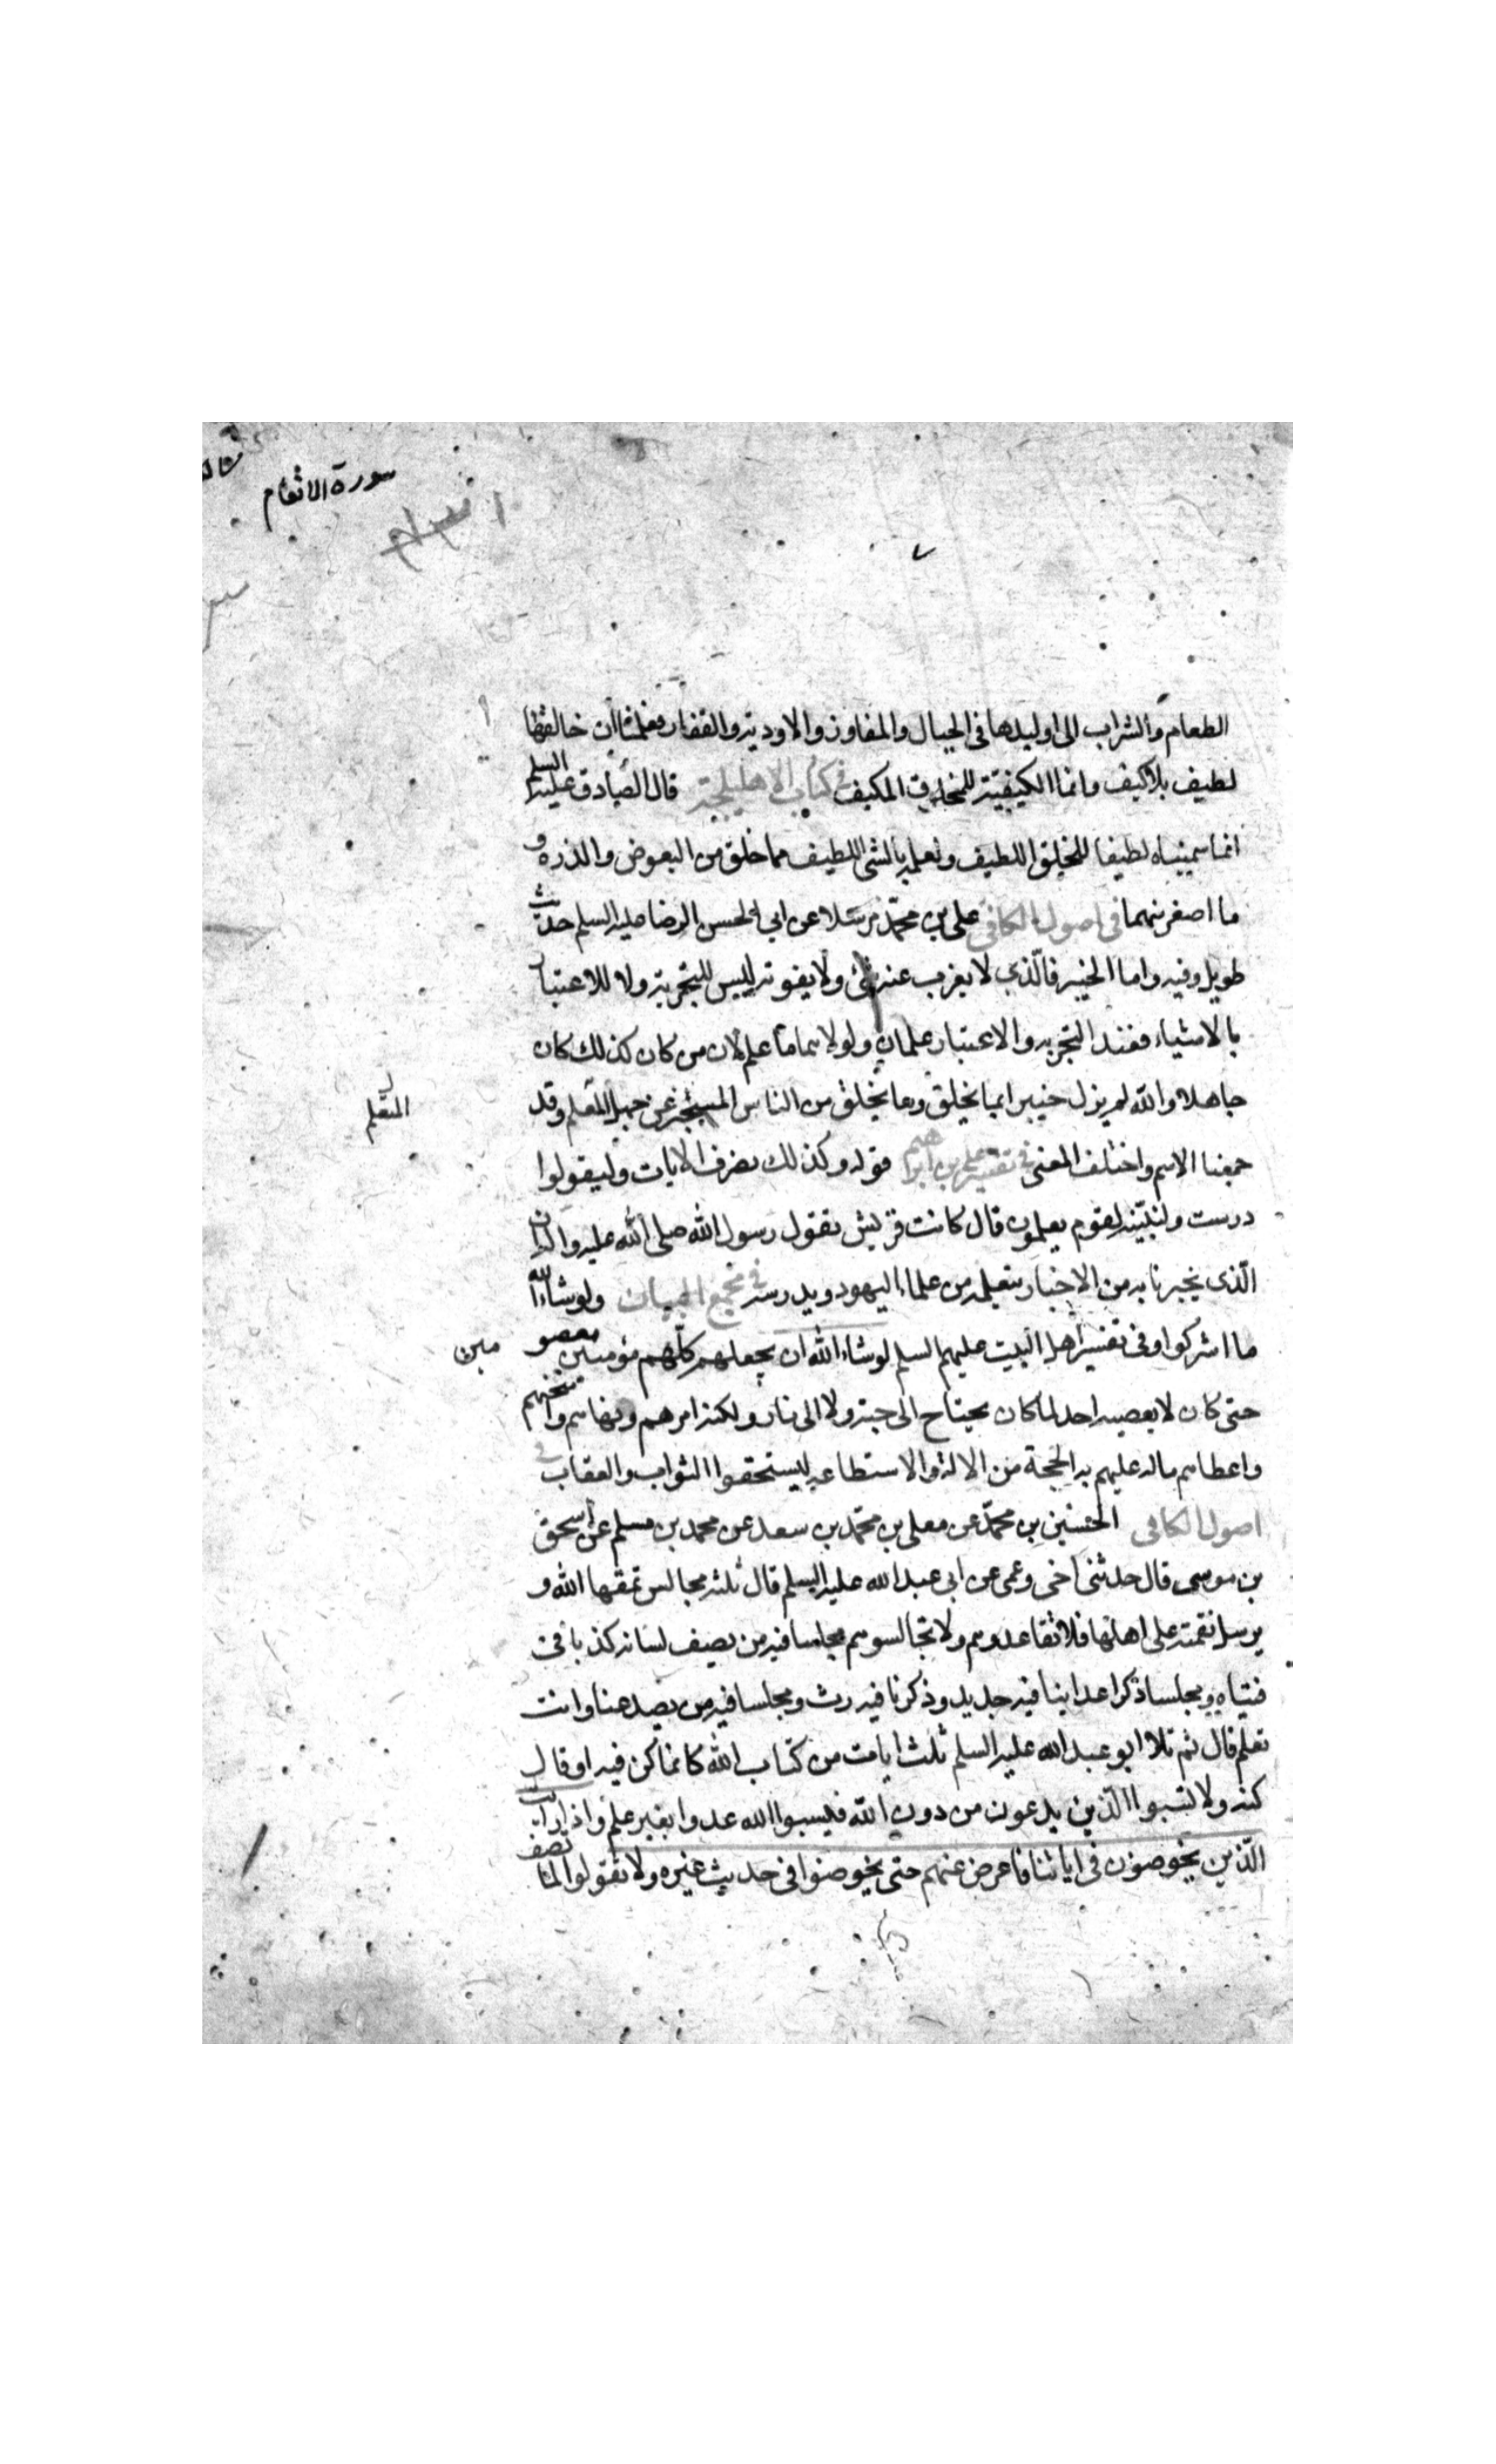 سورة الانعام
٧
الطعام والشراب الى اوليدها فى الجبال والمفاوز والاودية والقفار فعلمنا ان خالقها
لطيف بلا كيف وانما الكيفية للمخلوق المكيف فى كتاب الاهليلجة قال الصادق عليه السلم
انما سميناه لطيفا للخلق اللطيف ولعلمه بالشئ اللطيف مما خلق من البعوض والذرة و
ما اصغر منهما فى اصول الكافى على بن محمد مرسلا عن ابى الحسن الرضا عليه السلم حديث
طويل وفيه واما الخبير فالذى لا يعزب عنه شئ ولا يفوته ليس للتجربة ولا للاعتبار
بالاشياء فعند التجربه والاعتبار علمان ولولاهما ما علم لان من كان كذلك كان
جاهلا والله لم يزل خبيرا بما يخلق وما يخلق من الناس المستخبر عن جهل المتعلم وقد
المتعلم
جمعنا الاسم واختلف المعنى فى تفسير على بن ابراهيم قوله وكذلك نصرف الايات وليقولوا
درست ولنبينه لقوم يعلمون قال كانت قريش تقول رسول الله صلى الله عليه واله ان
الذى يخبرنا به من الاخبار يتعلمه من علماء اليهود ويدرسه فى مجمع البيان ولو شاء الله
ما اشركوا وفى تفسير اهل البيت عليهم السلم لو شاء الله ان يجعلهم كلهم مؤمنين معصومين
حتى كان لا يعصيه احد لما كان يحتاج الى جنة ولا الى نار ولكنه امرهم ونهاهم وامتحنهم
واعطاهم ماله عليهم به الحجة من الالة والاستطاعه ليستحقوا الثواب والعقاب فى
اصول الكافى الحسين بن محمد عن معلى بن محمد بن سعد عن محمد بن مسلم عن اسحق
بن موسى قال حدثنى اخى وعمى عن ابى عبد الله عليه السلم قال ثلثه مجالس يمقتها الله و
يرسل نقمته على اهلها فلا تقاعدوهم ولا تجالسوهم مجلسا فيه من يصف لسانه كذبا فى
فتياه ومجلسا ذكر اعداينا فيه جديد وذكرنا فيه رث ومجلسا فيه من يصد عنا وانت
تعلم قال ثم تلا ابو عبد الله عليه السلم ثلث ايات من كتاب الله كانما كن فيه او قال
كفه ولا تسبوا الذين يدعون من دون الله فيسبوا الله عدوا بغير علم واذا رايت
الذين يخوضون فى اياتنا فاعرض عنهم حتى يخوضوا فى حديث غيره ولا تقولوا لما تصف